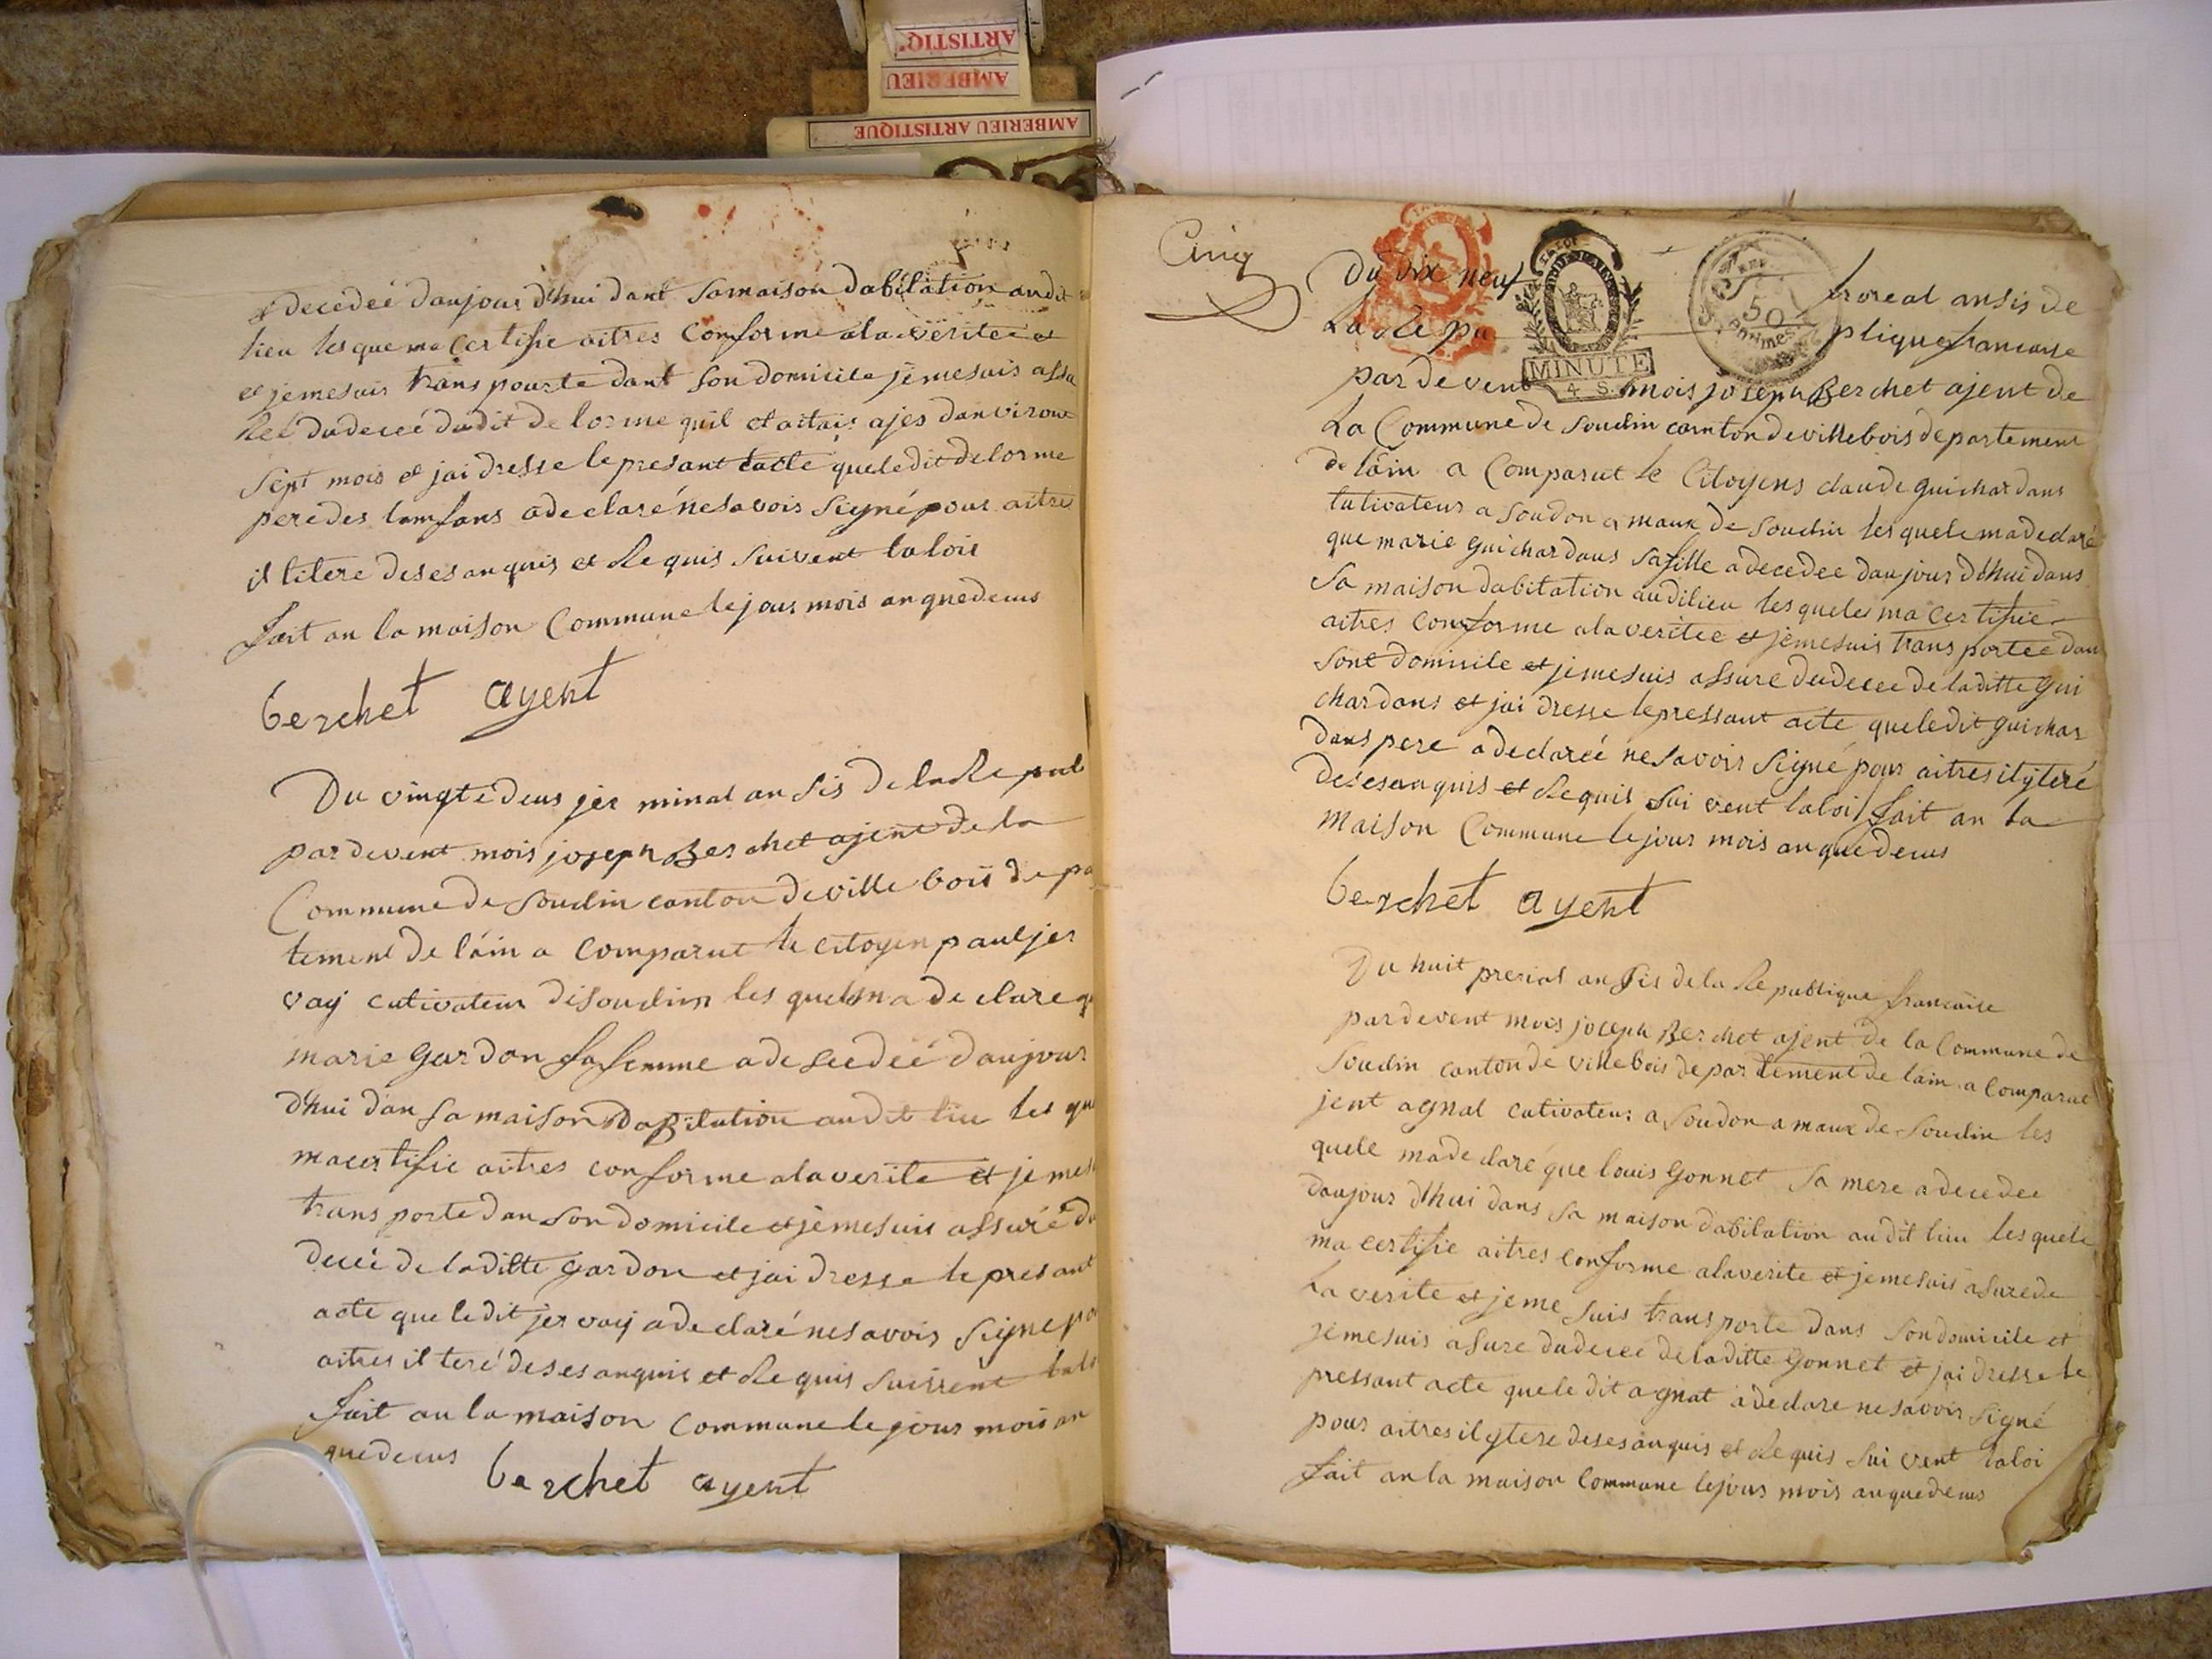 ARTISTIQ'
AMBERIEU
AMBERIEU ARTISTIQUE
a decedeé daujour d'hui dant sa maison dabitation audit
lieu les que ma certifie aitres conforme ala veritee et
et je me suis trans pourte dant son domicile je me suis assu
reé du deceé dudit delorme quil et aitais ajes danviron
sept mois et jai dresse le presant tacte que le dit delorme
pere des lamfans a declaré ne savois signé pour aitre
il litere des es anquis et Requis suivent la lois
fait an la maison Commune le jour mois an que deus
berchet agent
Du vingte deus jer minal an sis de la Repub
par devent mois joseph Berchet ajent de la
Commune de Soudin canton de ville bois depa
tement de láin a comparut le citoyen paul jer
vaÿ cutivateur de Soudim les quels ma de clare q
marie Gardon sa femme a deseedeé daujour
d'hui dan sa maison dabitation audit lieu les qu
ma certifie aitres conforme ala verite et je me s
trans porte dan son domicile et je me suis assuré du
deceé de laditte Gardon et jai dresse le presant
acte que le dit jer vaÿ a declaré ne savois signe po
aitres il teré des es anquis et Requis suissent la lo
fait an la maison Commune le jour mois an
que deus
berchet agent
Cinq
Du dix neuf froreal an sis de
La Repu plique francaise
MINUTE
4 S.
50
par devent mois joseph Berchet ajent de
La Commune de Soudin camton de villebois departement
de láin a Comparut le Citoyens claude guichardans
tutivateur a Soudon a maux de Soudin les quele ma declaré
que marie guichardans sa fille a decedee daujour d'hui dans
sa maison dabitation audi lieu les queles ma certifie
aitres comforme ala veritee et je me suis trans portee dan
sont domicile et je me suis assure du decee de laditte gui
chardans et jai dresse le pressant acte que le dit guichar
dans pere a declareé ne savoir signé pour aitres il ÿ teré
des es anquis et Requis sui vent la loi fait an la
maison Commune le jour mois an que deus
berchet agent
Du huit prerial an sis de la Republique francaise
par devent mois joseph Berchet ajent de la Commune de
Soudin canton de villebois departement de láin a comparut
jent agnal cutivateur a Soudon a maux de Soudin les
quele ma de claré que louis Gonnet sa mere a decedee
daujour d'hui dans sa maison dabitation audit lieu les quele
ma certifie aitres conforme ala verite et je me suis asure de
La verite et je me suis trans porte dans son domicile et
je me suis asure du decee de laditte Gonnet et jai dresse le
pressant acte que le dit agnat a declare ne savoir signé
pour aitres il ÿ tere des es anquis et Requis sui vent la loi
fait an la maison Commune le jour mois an que deus